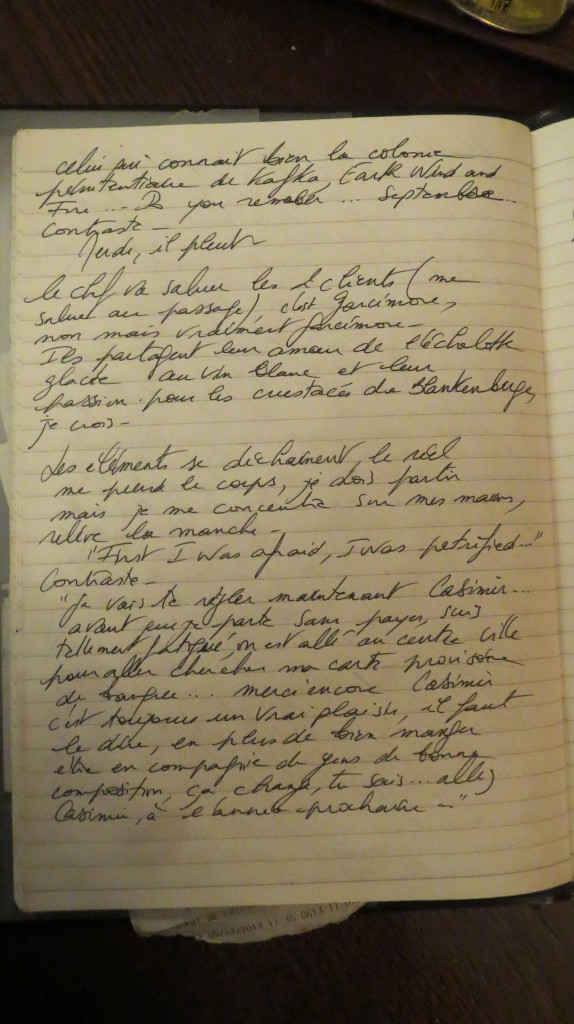 celui qui connait bien la colonie
pénitentiaire de Kafka, Earth Wind and
Fire... Do you remember... September...
Contraste -
Jeudi, il pleut -
le chef va saluer les 2 clients (me
salue au passage), c'est Garcimore,
non mais vraiment Garcimore -
Ils partagent leur amour de l'échalotte
glacée au vin blanc et leur
passion pour les crustacés de Blankenberge,
je crois -
Les éléments se déchainent, le réel
me prend le corps, je dois partir
mais je me concentre sur mes mains,
relève la manche -
"First I was afraid, I was petrified..."
Contraste -
"Je vais te régler maintenant Casimir...
avant que je parte sans payer, suis
tellement fatigué, on est allé au centre ville
pour aller chercher ma carte provisoire
de banque... merci encore Casimir
c'est toujours un vrai plaisir, il faut
le dire, en plus de bien manger
être en compagnie de gens de bonne
composition, ça change, tu sais... allez
Casimir, à l'année prochaine -..."
05/12/2013 11 35 0613 11